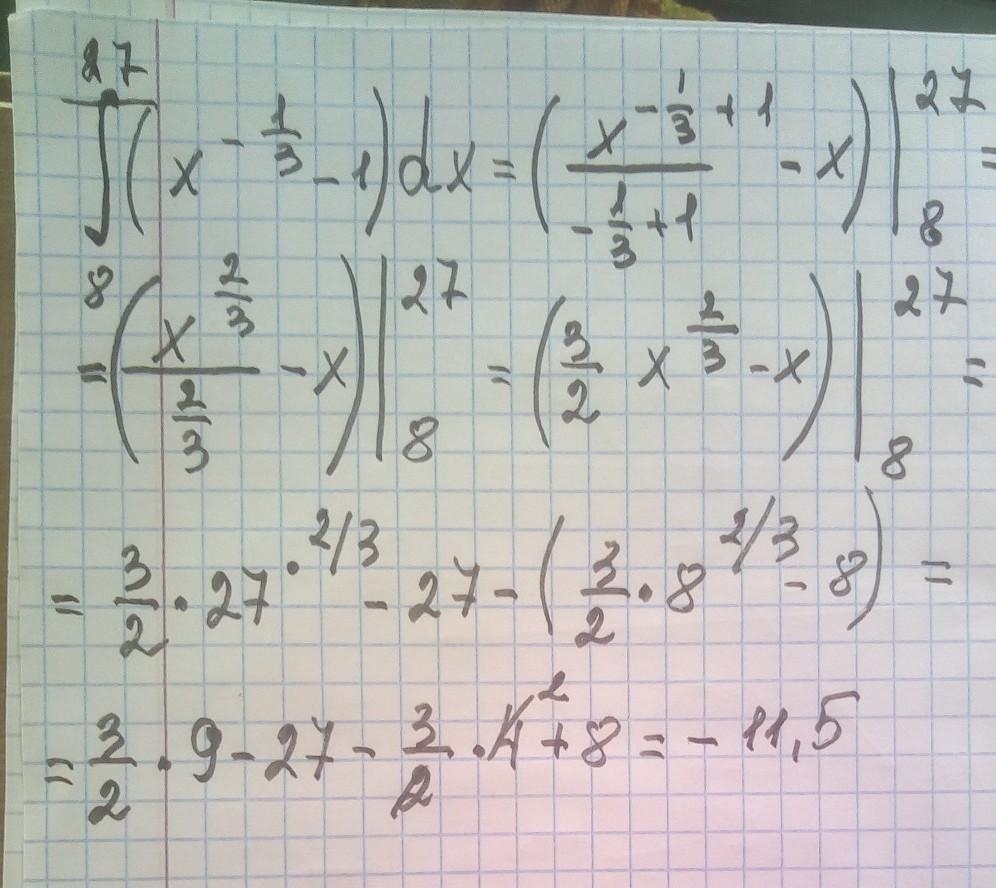 ∫₈²⁷ (x^(-1/3) - 1) dx = (x^(-1/3 + 1) / (-1/3 + 1) - x) |₈²⁷ =
= (x^(2/3) / (2/3) - x) |₈²⁷ = (3/2 x^(2/3) - x) |₈²⁷ =
= 3/2 · 27^(·2/3) - 27 - (3/2 · 8^(2/3) - 8) =
= 3/2 · 9 - 27 - 3/2 · 4² + 8 = - 11,5